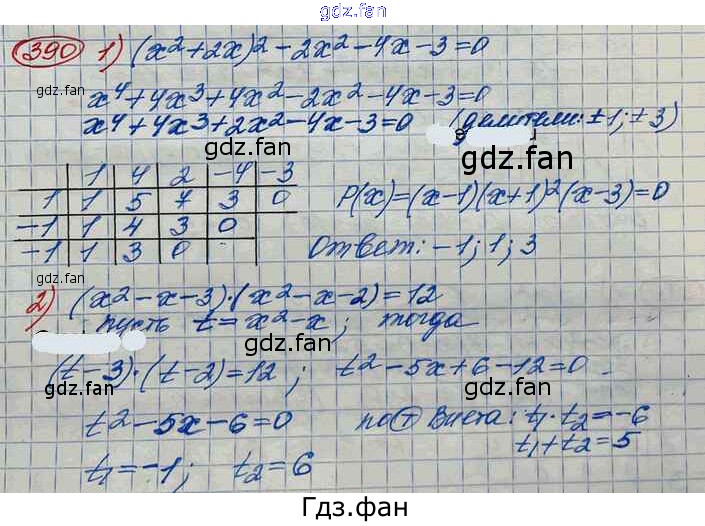 gdz.fan
390 1) (x²+2x)²-2x²-4x-3=0
gdz.fan
x⁴+4x³+4x²-2x²-4x-3=0
x⁴+4x³+2x²-4x-3=0 (делители: ±1; ±3)
gdz.fan
gdz.fan
1 4 2 -4 -3
1 1 5 7 3 0
-1 1 4 3 0
-1 1 3 0
P(x)=(x-1)(x+1)²(x-3)=0
Ответ: -1; 1; 3
gdz.fan
gdz.fan
2) (x²-x-3)·(x²-x-2)=12
пусть t=x²-x; тогда
gdz.fan
(t-3)·(t-2)=12; t²-5x+6-12=0
gdz.fan
t²-5x-6=0 по т Виета: t₁·t₂=-6
t₁+t₂=5
t₁=-1; t₂=6
gdz.fan
gdz.fan
Гдз.фан